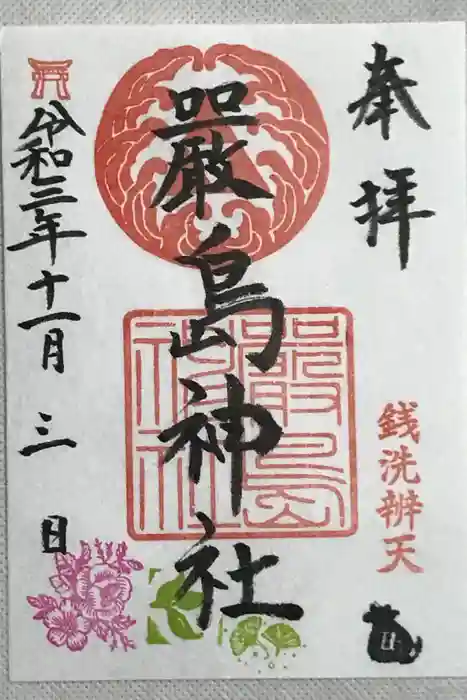 奉拝
銭洗辨天
嚴島神社
嚴島神社
令和三年十一月三日